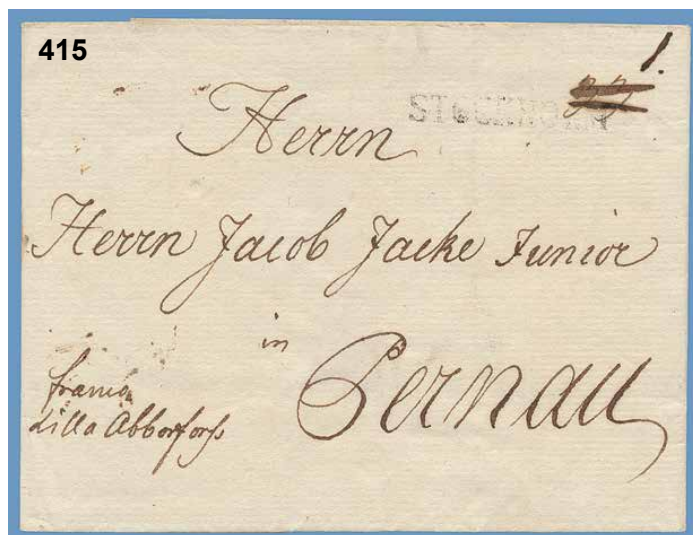 415
1.
STOCKHOLM
Herrn
Herrn Jacob Jacke Junior
in
Pernau
franco
Lilla Abborforss